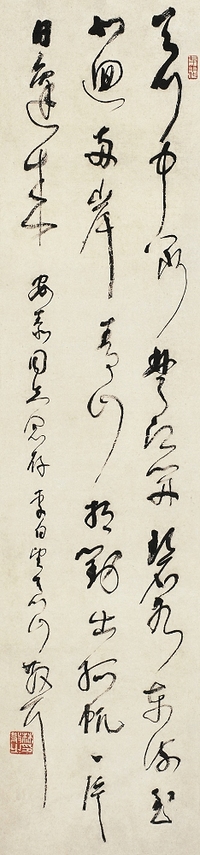 天門中斷楚江開碧水東流至
此迴兩岸青山相對出孤帆一片
日邊來 安泰同志惠存 李白望天門山 散耳